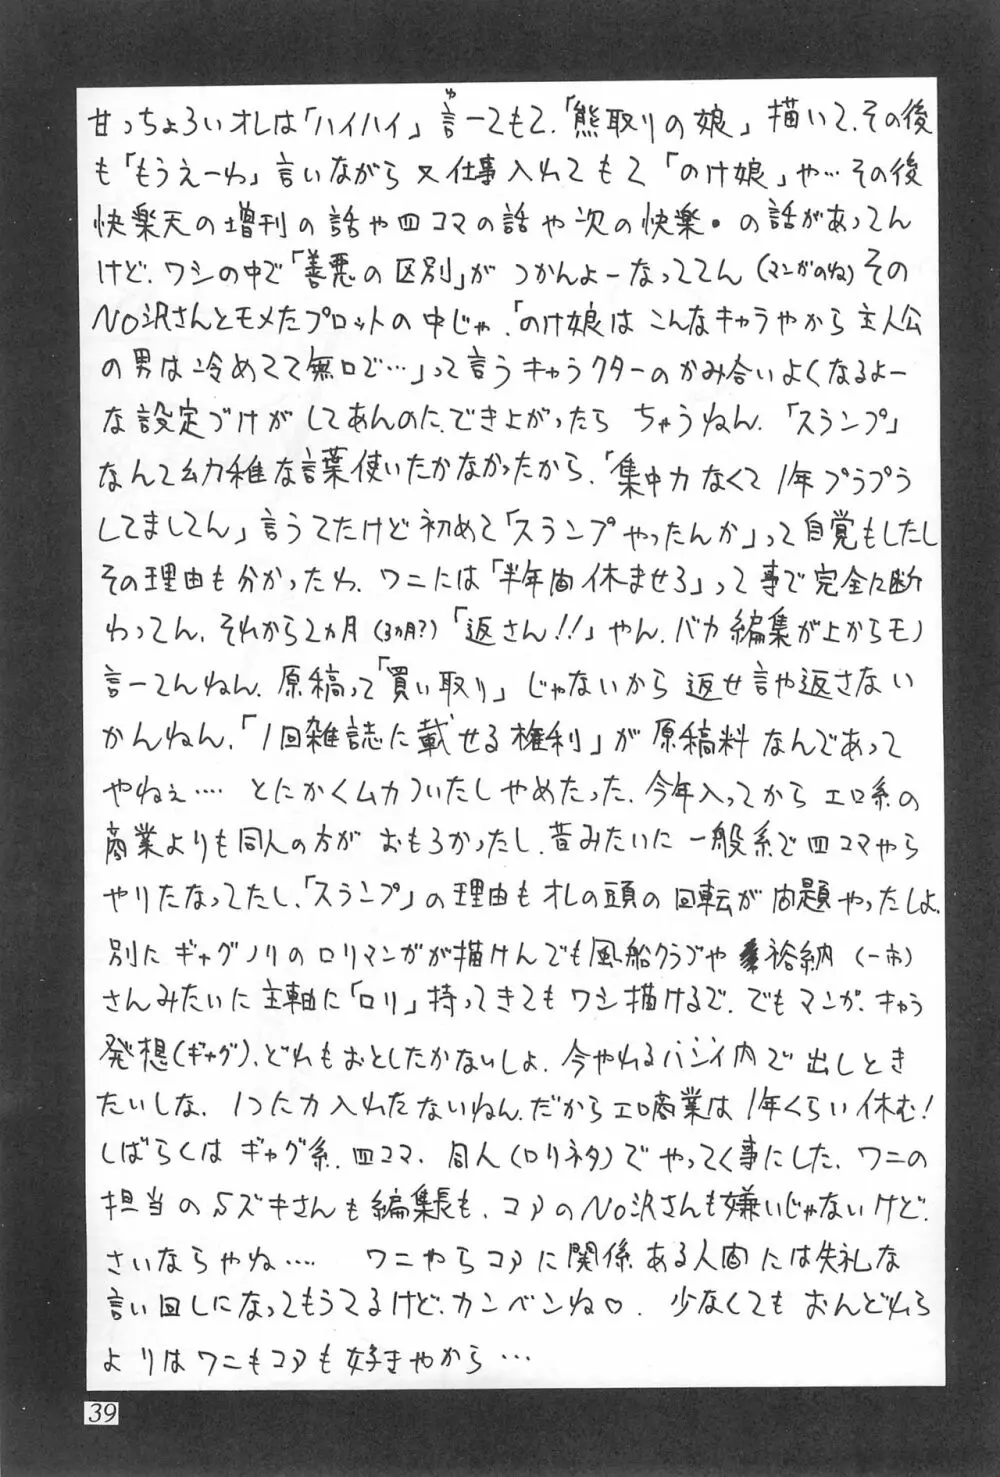 甘っちょろいオレは「ハイハイ」言ーてもて、「熊取りの娘」描いて、その後
ゆ
も「もうえーわ」言いながら又仕事入れてもて「のけ娘」や…その後
快楽天の増刊の話や四コマの話や次の快楽・の話があってん
けど、ワシの中で「善悪の区別」がつかんよーなっててん(マンガのね)その
NO沢さんとモメたプロットの中じゃ、「のけ娘はこんなキャラやから主人公
の男は冷めてて無口で…」って言うキャラクターのかみ合いよくなるよー
な設定づけがしてあんのに、でき上がったらちゃうねん、「スランプ」
なんて幼稚な言葉使いたかなかったから、「集中力なくて1年プラプラ
してましてん」言うてたけど初めて「スランプやったんか」って自覚もしたし
その理由も分かったわ、ワニには「半年間休ませろ」って事で完全に断
わってん、それから2ヵ月(3ヵ月?)「返さん!!」やん、バカ編集が上からモノ
言ーてんねん、原稿って「買い取り」じゃないから返せ言や返さない
かんねん、「1回雑誌に載せる権利」が原稿料なんであって
やねぇ…. とにかくムカついたしやめたった、今年入ってからエロ系の
商業よりも同人の方がおもろかったし、昔みたいに一般系で四コマやら
やりたなってたし、「スランプ」の理由もオレの頭の回転が問題やったしよ、
別にギャグノリのロリマンガが描けんでも風船クラブや裕納(一市)
さんみたいに主軸に「ロリ」持ってきてもワシ描けるで、でもマンガ、キャラ
発想(ギャグ)、どれもおとしたかないしよ、今やれるハンイ内で出しとき
たいしな、1つに力入れたないねん、だからエロ商業は1年くらい休む!
しばらくはギャグ系、四コマ、同人(ロリネタ)でやってく事にした、ワニの
担当のSズキさんも編集長も、コアのNO沢さんも嫌いじゃないけど、
さいならやね…. ワニやらコアに関係ある人間には失礼な
言い回しになってもうてるけど、カンベンね♡. 少なくてもおんどれら
よりはワニもコアも好きやから…
39